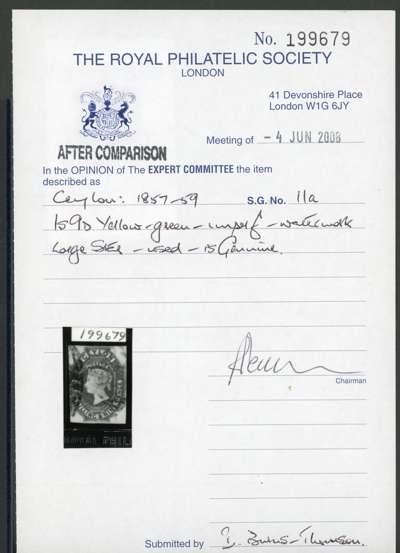 No. 199679
THE ROYAL PHILATELIC SOCIETY
LONDON
41 Devonshire Place
London W1G 6JY
AFTER COMPARISON
Meeting of - 4 JUN 2008
In the OPINION of The EXPERT COMMITTEE the item
described as
Ceylon: 1857-59 S.G. No. 11a
1s9d Yellow-green - imperf - watermark
Large Star - used - is Genuine.
199679
Chairman
ROYAL PHIL
Submitted by D. Burns-Thomson.